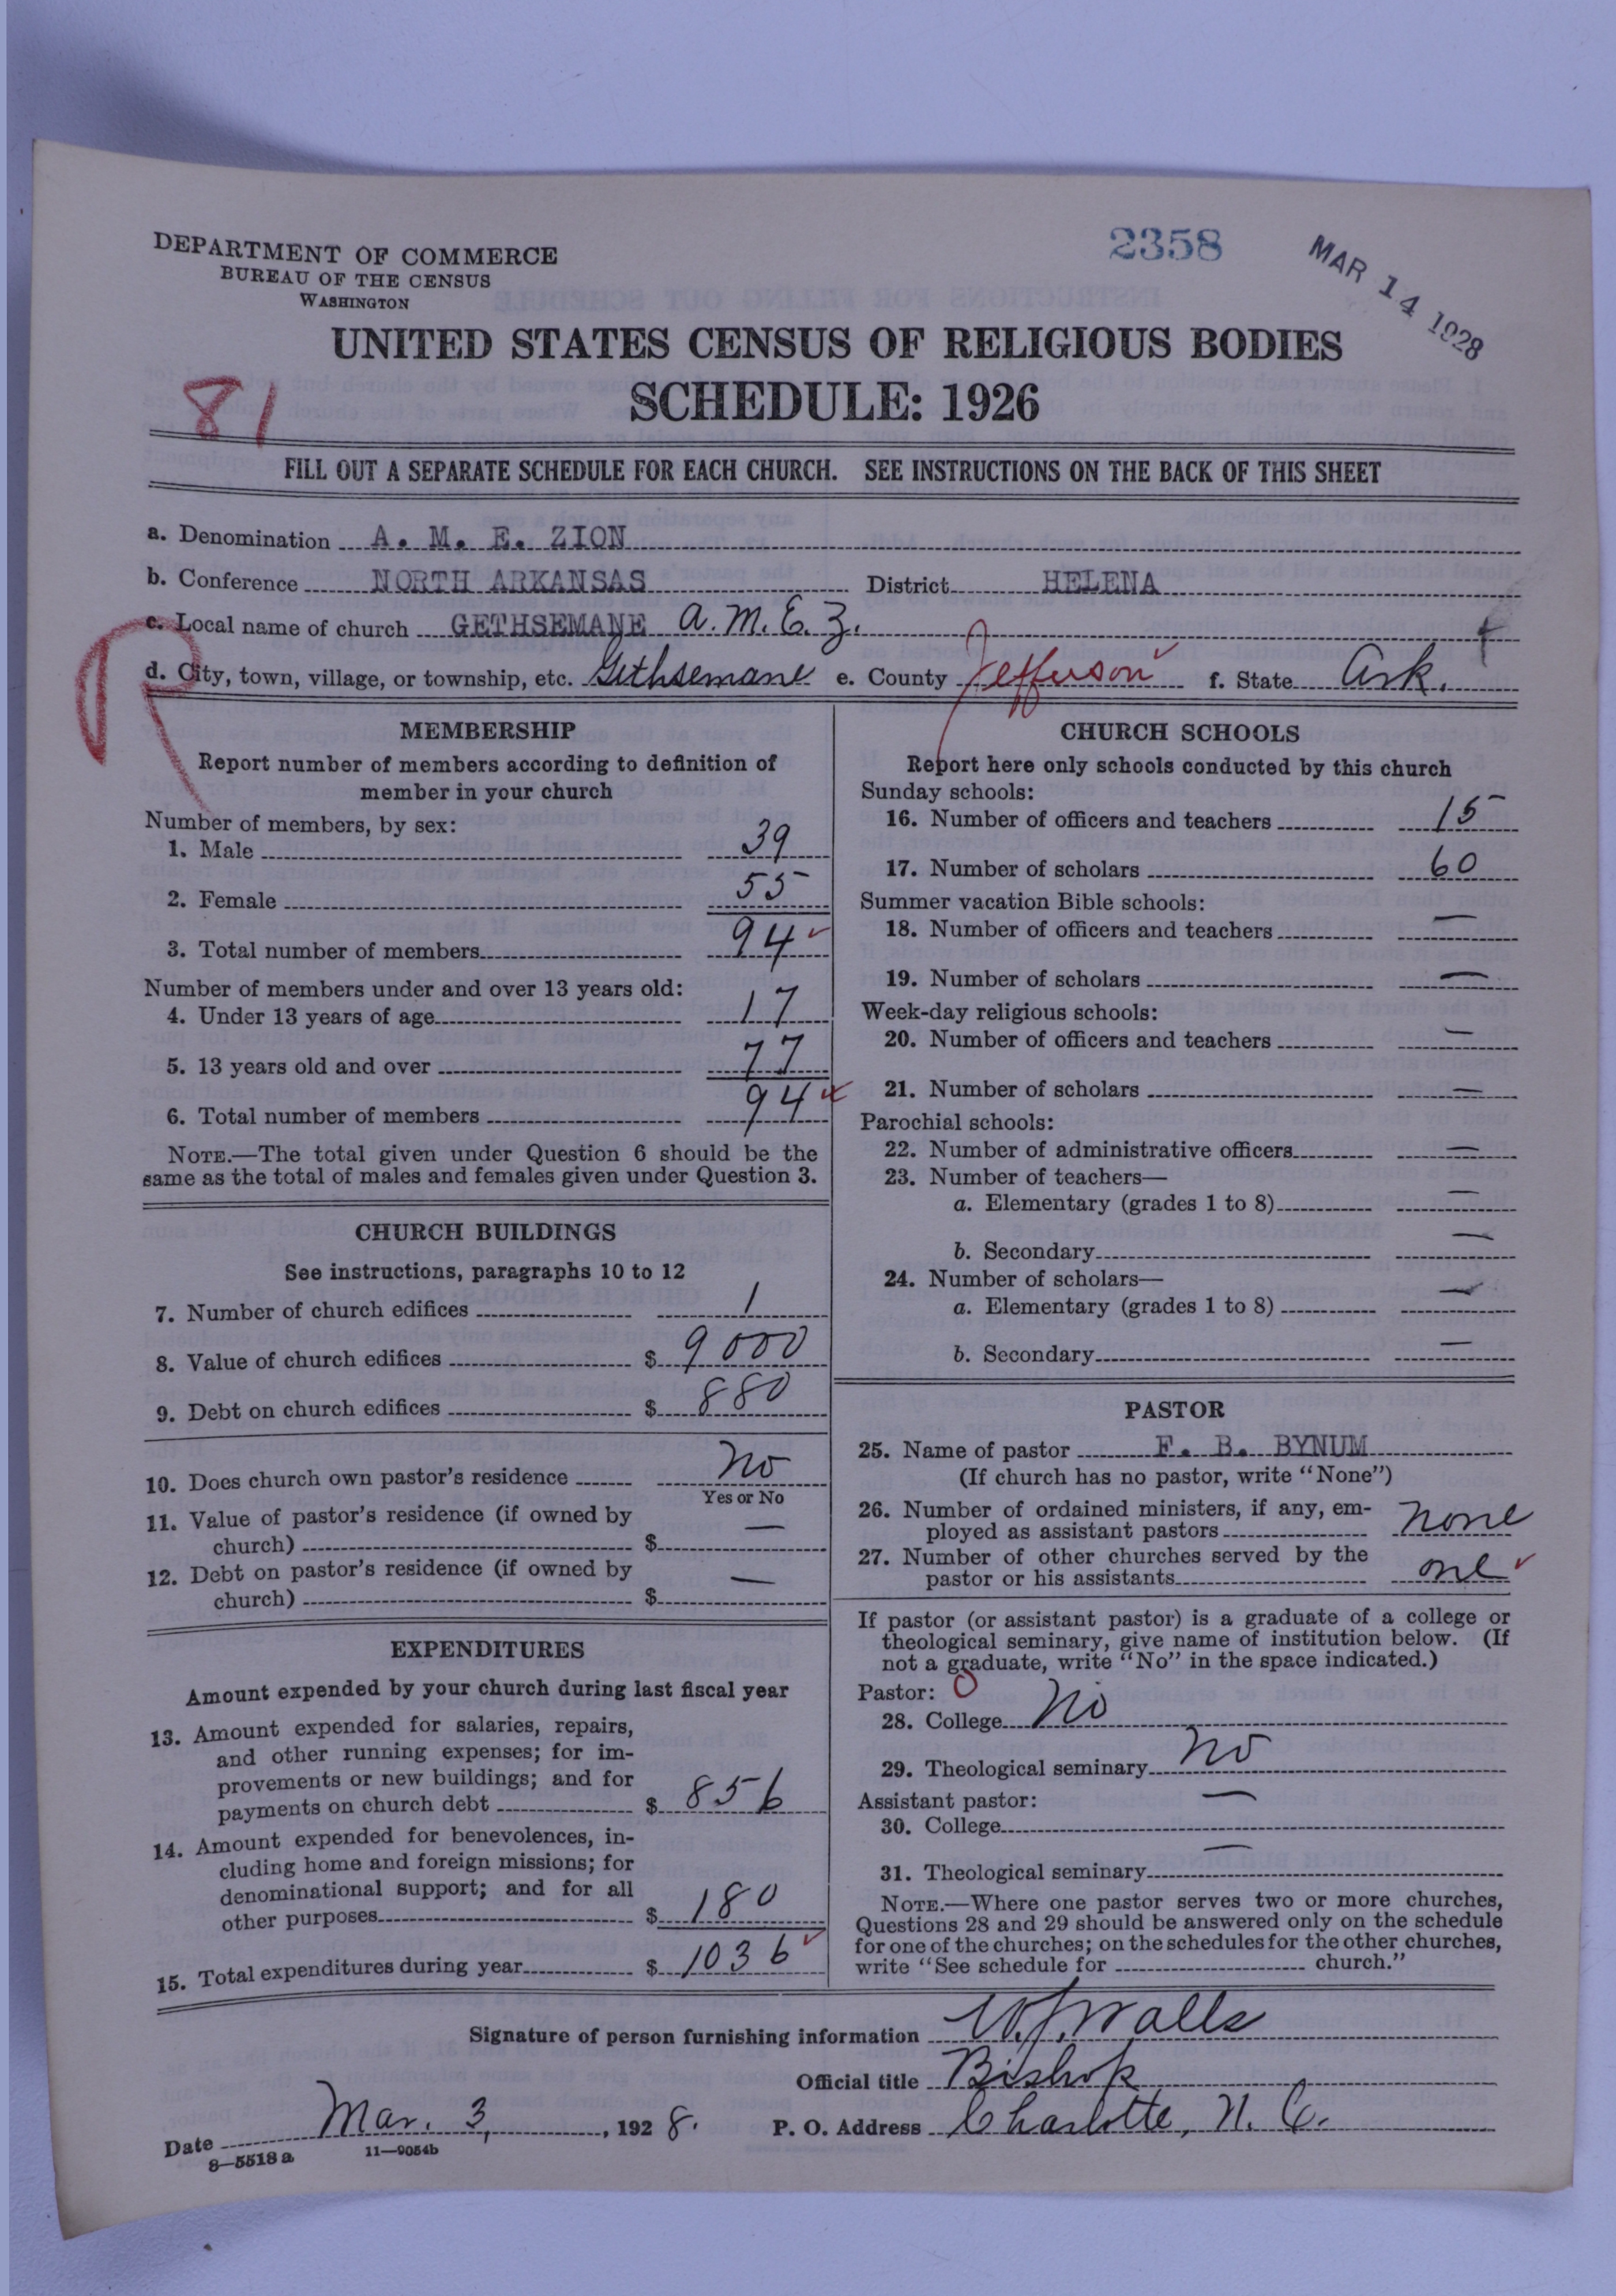 DEPARTMENT OF COMMERCE
BUREAU OF THE CENSUS
WASHINGTON
2358
MAR 14 1928
UNITED STATES CENSUS OF RELIGIOUS BODIES
SCHEDULE: 1926
81
FILL OUT A SEPARATE SCHEDULE FOR EACH CHURCH. SEE INSTRUCTIONS ON THE BACK OF THIS SHEET
a. Denomination A. M. E. ZION
b. Conference NORTH ARKANSAS District HELENA
c. Local name of church GETHSEMANE A.M.E.Z.
d. City, town, village, or township, etc. Gethsemane e. County Jefferson f. State Ark.
R
MEMBERSHIP
Report number of members according to definition of
member in your church
Number of members, by sex:
1. Male 39
2. Female 55
3. Total number of members 94
Number of members under and over 13 years old:
4. Under 13 years of age 17
5. 13 years old and over 77
6. Total number of members 94
NOTE.—The total given under Question 6 should be the
same as the total of males and females given under Question 3.
CHURCH BUILDINGS
See instructions, paragraphs 10 to 12
7. Number of church edifices 1
8. Value of church edifices $ 9000
9. Debt on church edifices $ 880
10. Does church own pastor's residence No
Yes or No
11. Value of pastor's residence (if owned by
church) $ —
12. Debt on pastor's residence (if owned by
church) $ —
EXPENDITURES
Amount expended by your church during last fiscal year
13. Amount expended for salaries, repairs,
and other running expenses; for im-
provements or new buildings; and for
payments on church debt $ 856
14. Amount expended for benevolences, in-
cluding home and foreign missions; for
denominational support; and for all
other purposes $ 180
15. Total expenditures during year $ 1036
CHURCH SCHOOLS
Report here only schools conducted by this church
Sunday schools:
16. Number of officers and teachers 15
17. Number of scholars 60
Summer vacation Bible schools:
18. Number of officers and teachers —
19. Number of scholars —
Week-day religious schools:
20. Number of officers and teachers —
21. Number of scholars —
Parochial schools:
22. Number of administrative officers —
23. Number of teachers—
a. Elementary (grades 1 to 8) —
b. Secondary —
24. Number of scholars—
a. Elementary (grades 1 to 8) —
b. Secondary —
PASTOR
25. Name of pastor F. B. BYNUM
(If church has no pastor, write "None")
26. Number of ordained ministers, if any, em-
ployed as assistant pastors none
27. Number of other churches served by the
pastor or his assistants one
If pastor (or assistant pastor) is a graduate of a college or
theological seminary, give name of institution below. (If
not a graduate, write "No" in the space indicated.)
Pastor: 0
28. College No
29. Theological seminary No
Assistant pastor: —
30. College
31. Theological seminary —
NOTE.—Where one pastor serves two or more churches,
Questions 28 and 29 should be answered only on the schedule
for one of the churches; on the schedules for the other churches,
write "See schedule for church."
Signature of person furnishing information W.J. Walls
Official title Bishop
Date Mar. 3, 1928. P. O. Address Charlotte, N. C.
8—5518 a 11—9054b